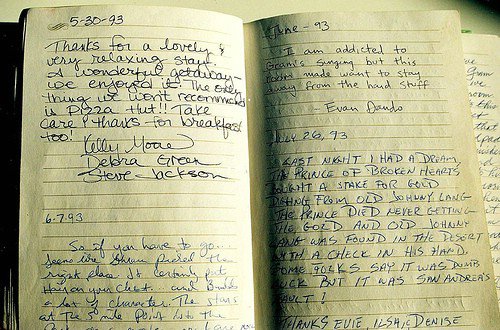 5-30-93
Thanks for a lovely &
very relaxing stay.
A wonderful getaway -
we enjoyed it. The only
thing we won't recommend
is Pizza Hut!! Take
care! Thanks for breakfast
too!
Kelly Moore
Debra Green
Steve Jackson
6-7-93
So if you have to go...
seems like Gram picked the
right place. It certainly put
Hair on your Chest and Builds
a lot of character. The stars
at the 5 mile Point
June - 93
I am addicted to
Gram's singing but this
made want to stay
away from the hard stuff
- Evan Dando
July 26, 93
LAST NIGHT I HAD A DREAM,
THE PRINCE OF BROKEN HEARTS
BOUGHT A STAKE FOR GOLD
FROM OLD JOHNNY LANG
THE PRINCE DIED NEVER GETTING
THE GOLD AND OLD JOHNNY
LANG WAS FOUND IN THE DESERT
WITH A CHECK IN HIS HAND.
SOME FOLKS SAY IT WAS DUMB
LUCK BUT IT WAS SAN ANDREA'S
FAULT!
THANKS EVIE, DENISE